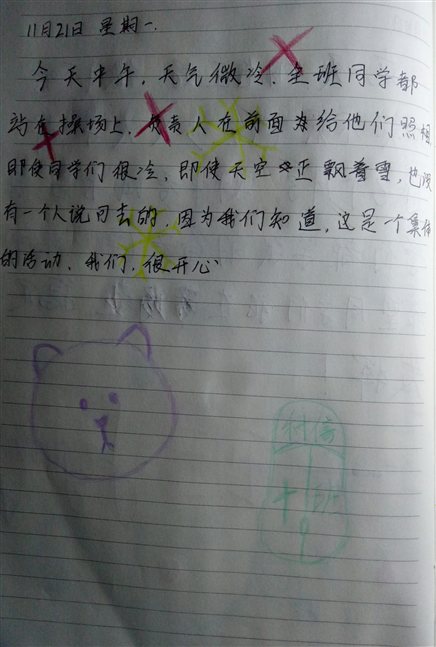 11月21日 星期一.
今天中午,天气微冷,全班同学都
站在操场上,负责人在前面为给他们照相
即使同学们很冷,即使天空正飘着雪,也没
有一个人说回去的.因为我们知道,这是一个集体
的活动,我们,很开心
计信
十班